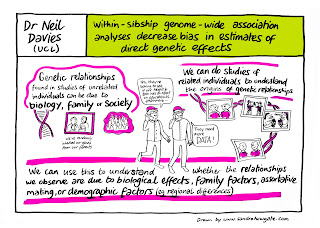 Dr Neil
Davies
(UCL)
Within-sibship genome-wide association
analyses decrease bias in estimates of
direct genetic effects
Genetic relationships
found in studies of unrelated
individuals can be due to
biology, Family or Society
We can do studies of
related individuals to understand
the origins of genetic relationships
They need
more
DATA!
We can use this to understand whether the relationships
we observe are due to biological effects, Family factors, assortative
mating, or demographic factors (eg regional differences)
Drawn by www.sandrahowgate.com